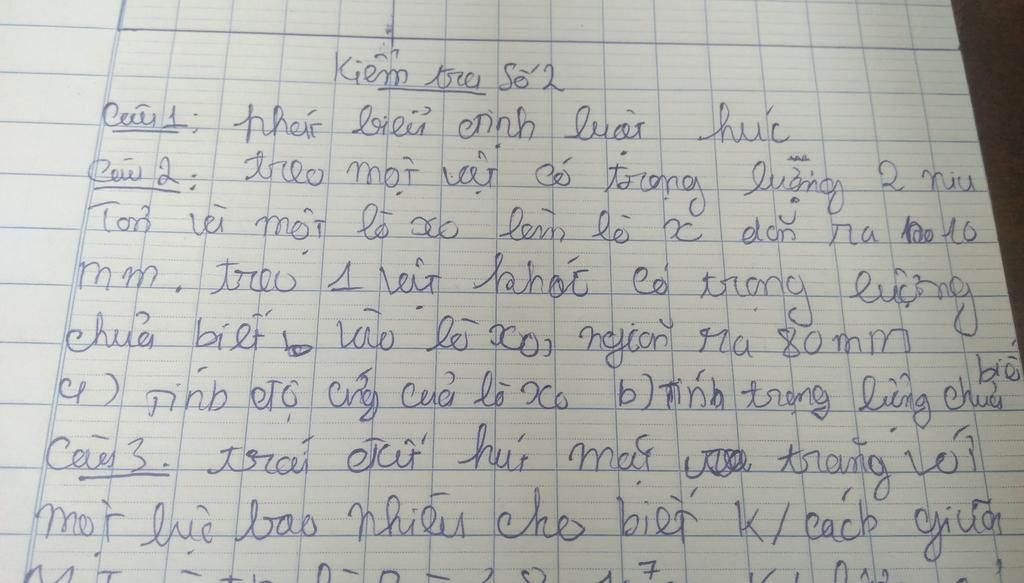 Kiểm tra số 2
Câu 1: phát biểu định luật húc
Câu 2: treo một vật có trọng lượng 2 niu
Tơn và một lò xo làm lò x dãn ra 10
mm. treo 1 vật khát có trọng lượng
chưa biết vào lò xo, ngión ra 80mm
a) Tính độ cứng của lò xo b) Tính trọng lượng chưa biế
Câu 3. trái đất hút mặt trăng với
một lực bao nhiêu cho biết k/cách giữa